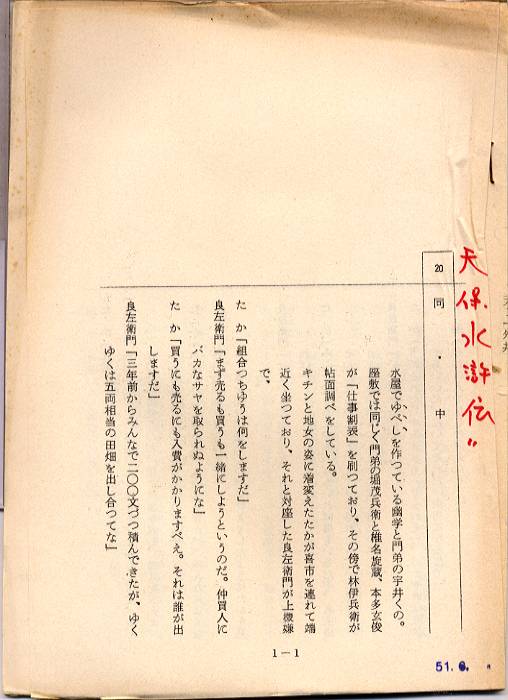 天保水滸伝〃
20 同・中
水屋でゆべしを作つている幽学と門弟の宇井くの。
座敷では同じく門弟の堀茂兵衛と椎名旋蔵、本多玄俊
が「仕事割表」を刷つており、その傍で林伊兵衛が
帖面調べをしている。
キチンと地女の姿に着変えたたかが喜市を連れて端
近く坐つており、それと対座した良左衛門が上機嫌
で、
たか「組合つちゆうは何をしますだ」
良左衛門「まず売るも買うも一緒にしようというのだ。仲買人に
バカなサヤを取られぬようにな」
たか「買うにも売るにも入費がかかりますべえ。それは誰が出
しますだ」
良左衛門「三年前からみんなで二〇〇文づつ積んできたが、ゆく
ゆくは五両相当の田畑を出し合つてな」
1—1
51.